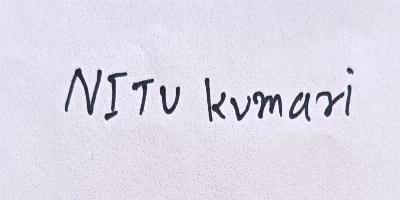 NITU kumari